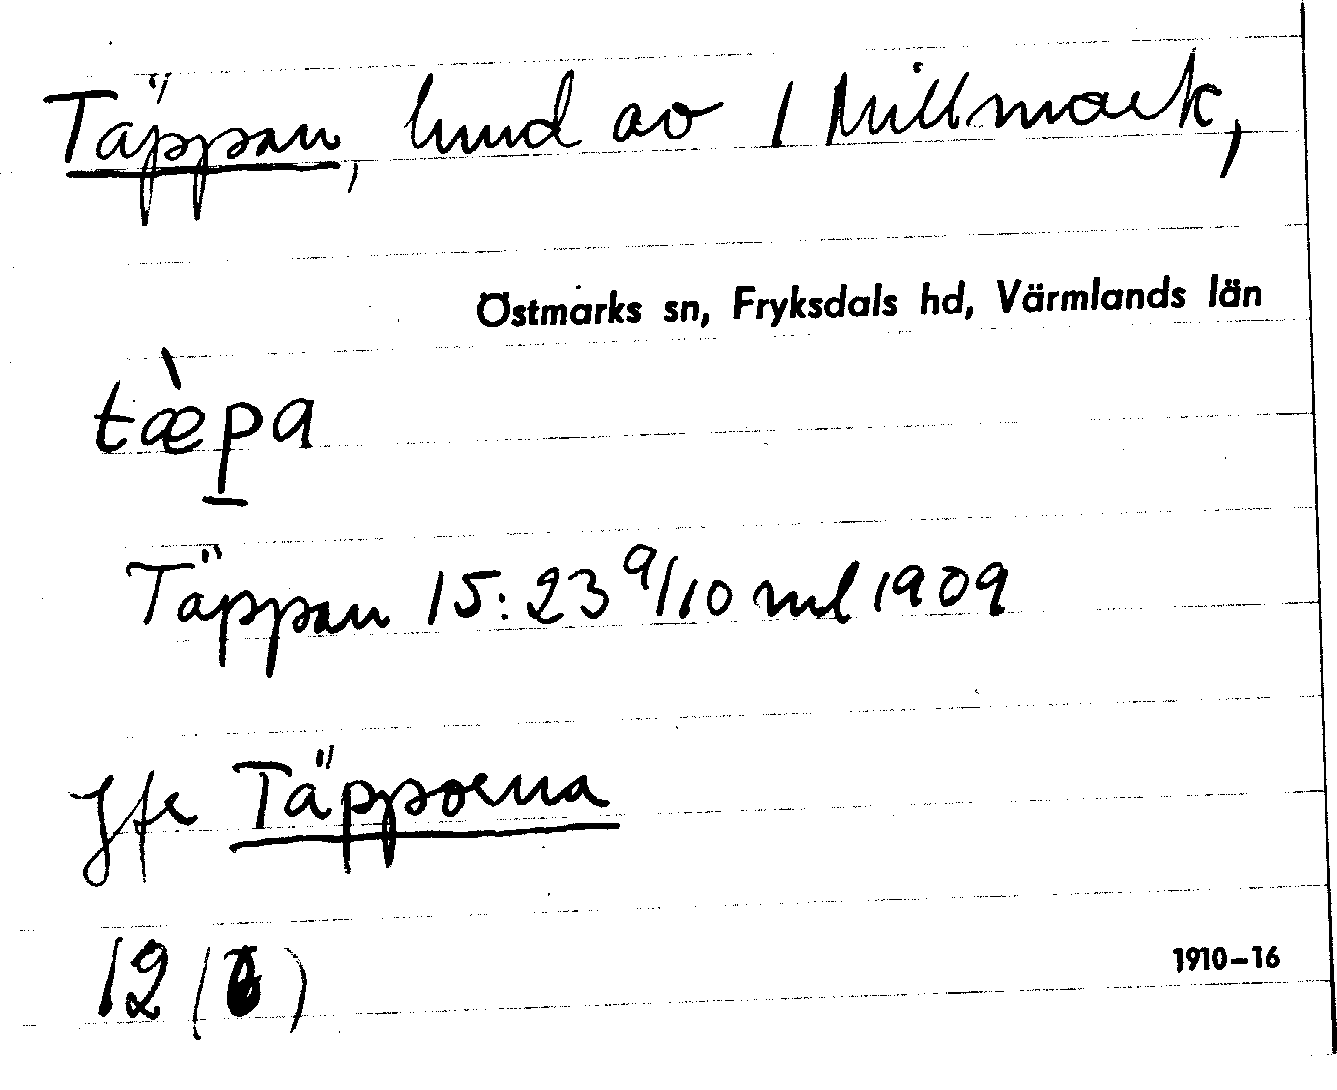 Täppan, hmd av 1 Millmark,
Östmarks sn, Fryksdals hd, Värmlands län
tæ̀pa
Täppan 15:23 9/10 mtl 1909
Jfr Täpporna
12 (6)
1910–16